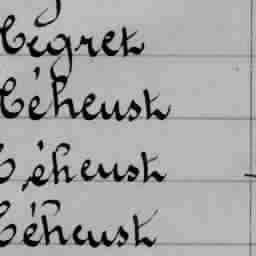 Négret
Téheust
Téheust
Téheust